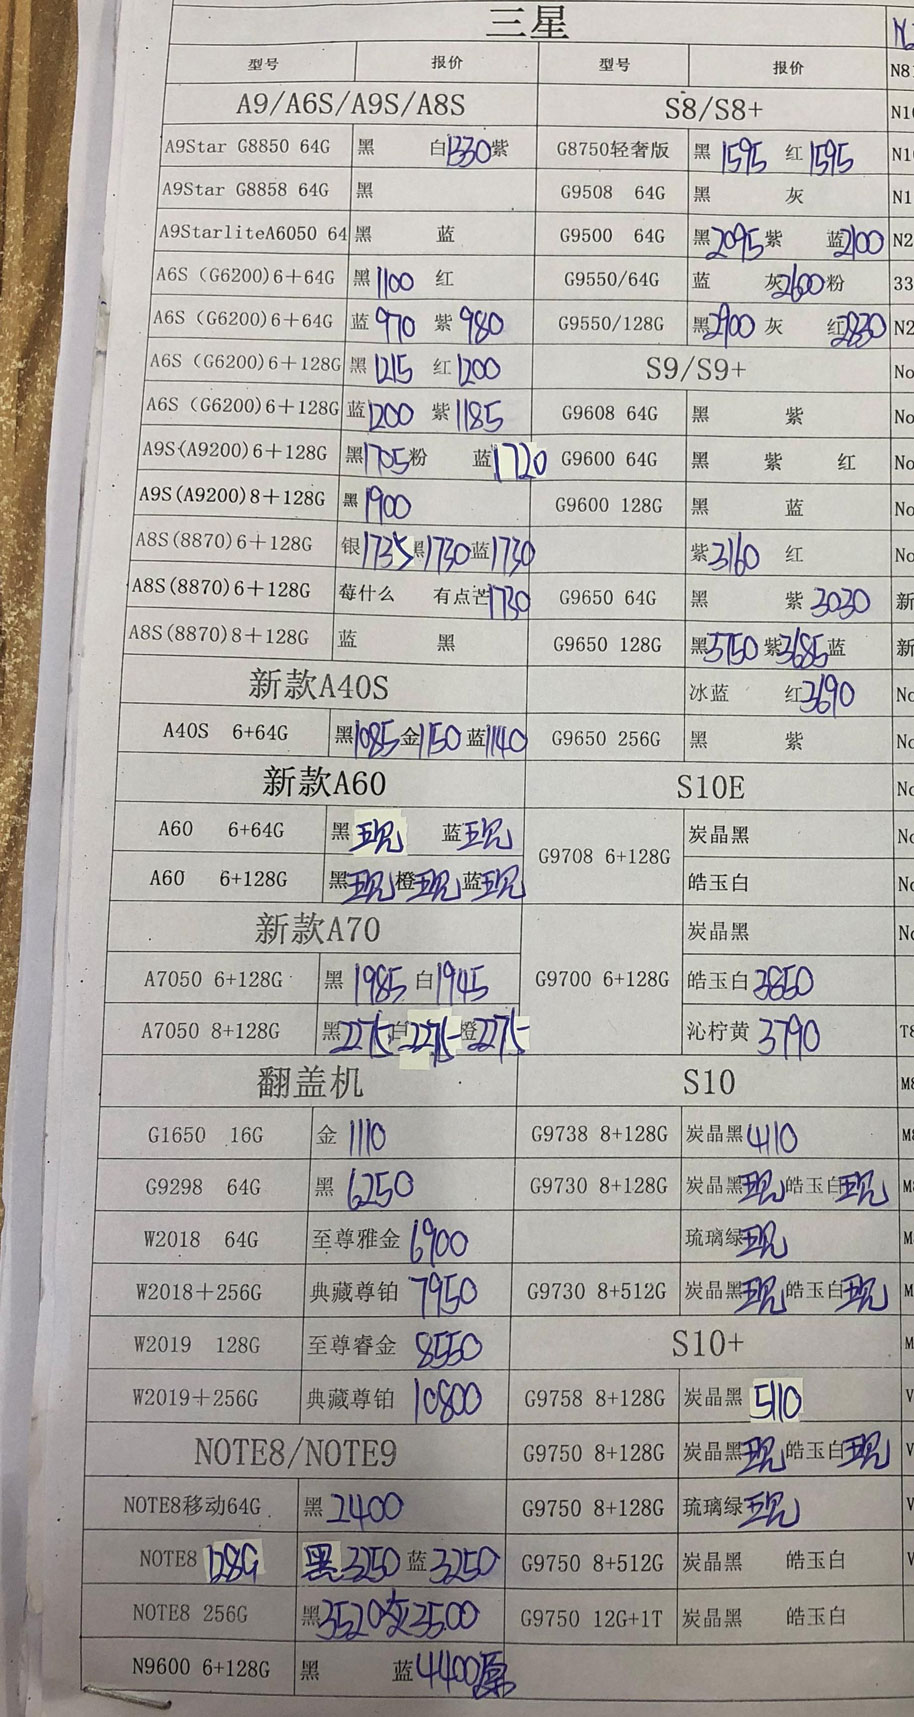 三星
型号 报价 型号 报价 N8
A9/A6S/A9S/A8S S8/S8+ N1
A9Star G8850 64G 黑 白1330紫 G8750轻奢版 黑1595 红1595 N1
A9Star G8858 64G 黑 G9508 64G 黑 灰 N1
A9StarliteA6050 64 黑 蓝 G9500 64G 黑2095紫 蓝2100 N2
A6S (G6200)6+64G 黑1100 红 G9550/64G 蓝 灰2600粉 33
A6S (G6200)6+64G 蓝970 紫980 G9550/128G 黑2900灰 红2830 N2
A6S (G6200)6+128G 黑1215 红1200 S9/S9+ No
A6S (G6200)6+128G 蓝1200 紫1185 G9608 64G 黑 紫 No
A9S(A9200)6+128G 黑1705粉 蓝1720 G9600 64G 黑 紫 红 No
A9S(A9200)8+128G 黑1900 G9600 128G 黑 蓝 No
A8S(8870)6+128G 银1735黑1730蓝1730 紫3160 红 No
A8S(8870)6+128G 莓什么 有点芒1730 G9650 64G 黑 紫3030 新
A8S(8870)8+128G 蓝 黑 G9650 128G 黑3750紫3685蓝 新
新款A40S 冰蓝 红3690 No
A40S 6+64G 黑1085金1150蓝1140 G9650 256G 黑 紫 No
新款A60 S10E No
A60 6+64G 黑现 蓝现 G9708 6+128G 炭晶黑 No
A60 6+128G 黑现橙现蓝现 皓玉白 No
新款A70 炭晶黑 No
A7050 6+128G 黑1985白1945 G9700 6+128G 皓玉白3850
A7050 8+128G 黑2275白2275橙2275 沁柠黄3790 T8
翻盖机 S10 M8
G1650 16G 金1110 G9738 8+128G 炭晶黑4110 M8
G9298 64G 黑6250 G9730 8+128G 炭晶黑现皓玉白现 M
W2018 64G 至尊雅金6900 琉璃绿现 M
W2018+256G 典藏尊铂7950 G9730 8+512G 炭晶黑现皓玉白现 M
W2019 128G 至尊睿金8550 S10+ M
W2019+256G 典藏尊铂10800 G9758 8+128G 炭晶黑5110 V
NOTE8/NOTE9 G9750 8+128G 炭晶黑现皓玉白现 V
NOTE8移动64G 黑2400 G9750 8+128G 琉璃绿现 V
NOTE8 128G 黑3250蓝3250 G9750 8+512G 炭晶黑 皓玉白 V
NOTE8 256G 黑3520灰3500 G9750 12G+1T 炭晶黑 皓玉白
N9600 6+128G 黑 蓝4400原